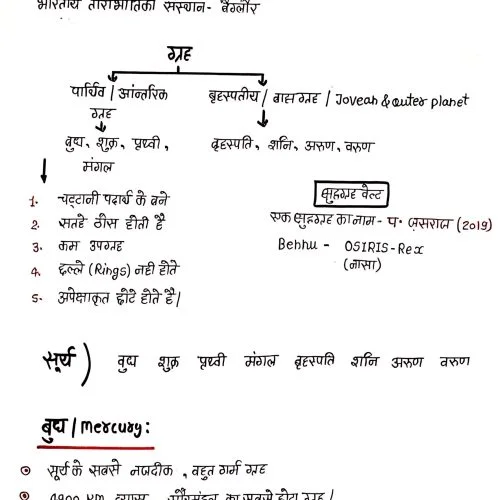 भारतीय ताराभौतिकी संस्थान - बैंग्लौर
ग्रह
पार्थिव / आंन्तरिक ग्रह
बृहस्पतीय / बाह्यग्रह / Jovean & outer planet
बुध, शुक्र, पृथ्वी, मंगल
बृहस्पति, शनि, अरुण, वरुण
1. चट्टानी पदार्थ के बने
2. सतहे ठोस होती है
3. कम उपग्रह
4. छल्ले (Rings) नही होते
5. अपेक्षाकृत छोटे होते है।
क्षुद्रग्रह बेल्ट
एक क्षुद्रग्रह का नाम - पं. जसराज (2019)
Behhu - OSIRIS-Rex
(नासा)
सूर्य ) बुध शुक्र पृथ्वी मंगल बृहस्पति शनि अरुण वरुण
बुध / Mercury:
सूर्य के सबसे नजदीक, बहुत गर्म ग्रह
4900 KM व्यास, सौरमंडल का सबसे छोटा ग्रह।